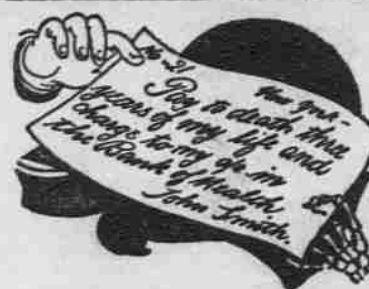 New York -
Pay to death three
years of my life and
charge to my a/c in
the Bank of Health.
John Smith.